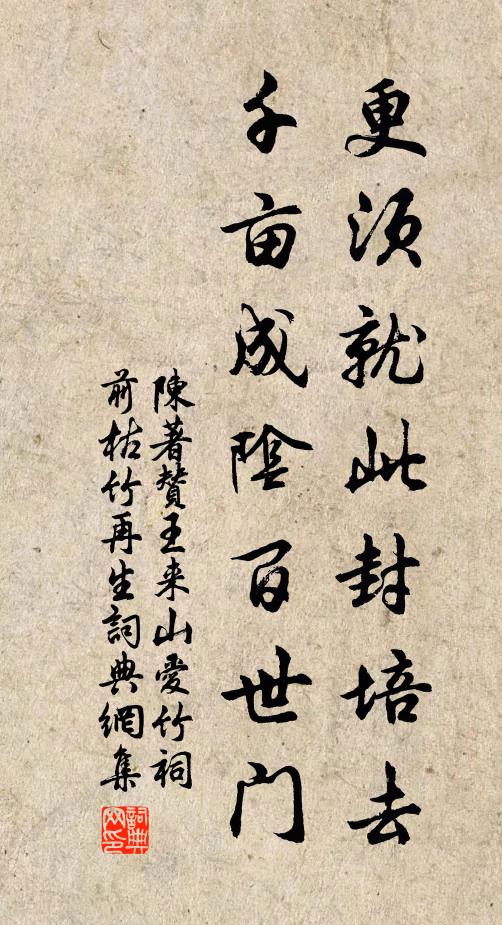 更须就此封培去
千亩成陰百世门
陳著贊王来山愛竹祠
前枯竹再生詞典網集
詞典
网印